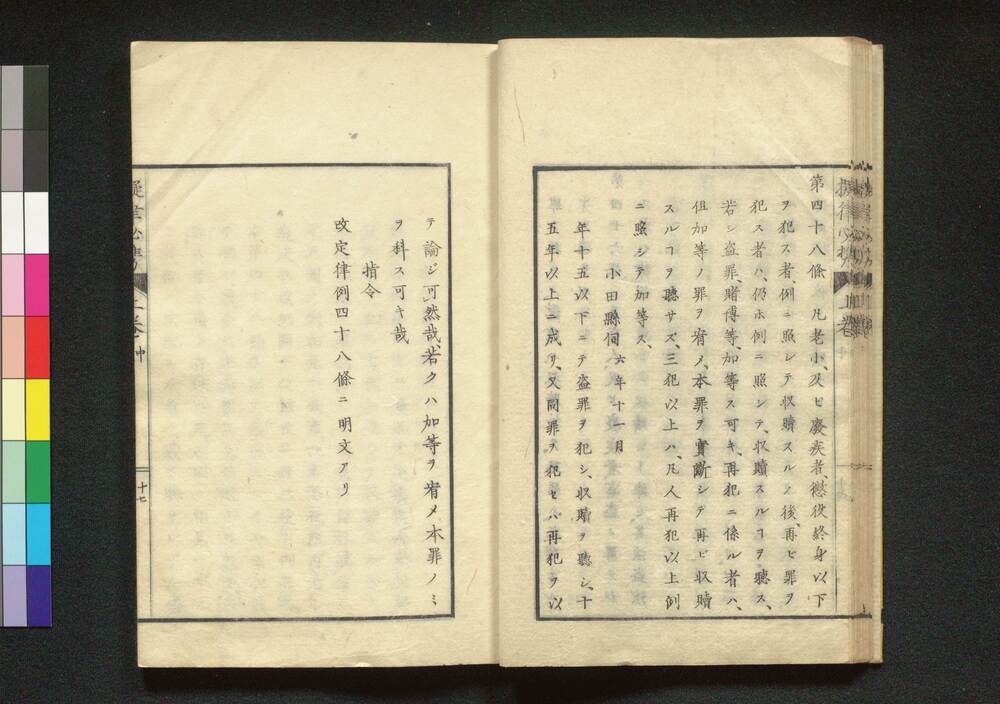 第四十八條 凡老小、及ビ廢疾者、懲役終身以下
ヲ犯ス者、例ニ照シテ収贖スルノ後、再ビ罪ヲ
犯ス者ハ、仍ホ例ニ照シテ、収贖スルヿヲ聽ス、
若シ盗罪、賭博等、加等ス可キ、再犯ニ係ル者ハ、
但加等ノ罪ヲ宥メ、本罪ヲ實斷シテ再ビ収贖
スルヿヲ聽サズ、三犯以上ハ、凡人再犯以上例
ニ照シテ加等ス、
小田縣伺 六年十一月
年十五以下ニテ盗罪ヲ犯シ、収贖ヲ聽シ、十
五年以上ニ成リ、又同罪ヲ犯セハ、再犯ヲ以
テ論ジ可然哉、若クハ加等ヲ宥メ本罪ノミ
ヲ科ス可キ哉
指令
改定律例四十八條ニ明文アリ
十七